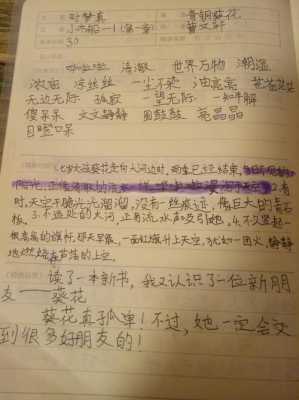 时梦真 青铜葵花
小木船—1(第一章) 曹文轩
30
啦啦啦 清澈 世界万物 潮湿
浓密 凉丝丝 一尘不染 油亮亮 苍苍茫茫
无边无际 孤寂 一望无际 一知半解
傻呆呆 文文静静 圆鼓鼓 亮晶晶
目瞪口呆
七岁女孩葵花走向大河边时,雨季已经结束,
2看
时,天空干脆光光溜溜,没有一丝痕迹,像巨大的青石
板。3.不远处的大河,正用流水声吸引她。4.不见竖起一
根高高的旗杆,那天早晨,一面红旗升上天空,犹如一团火,静静
地燃烧在芦荡的上空。
读了一本新书,我又认识了一位新朋
友——葵花
葵花真孤单!不过,她一定会交
到很多好朋友的!